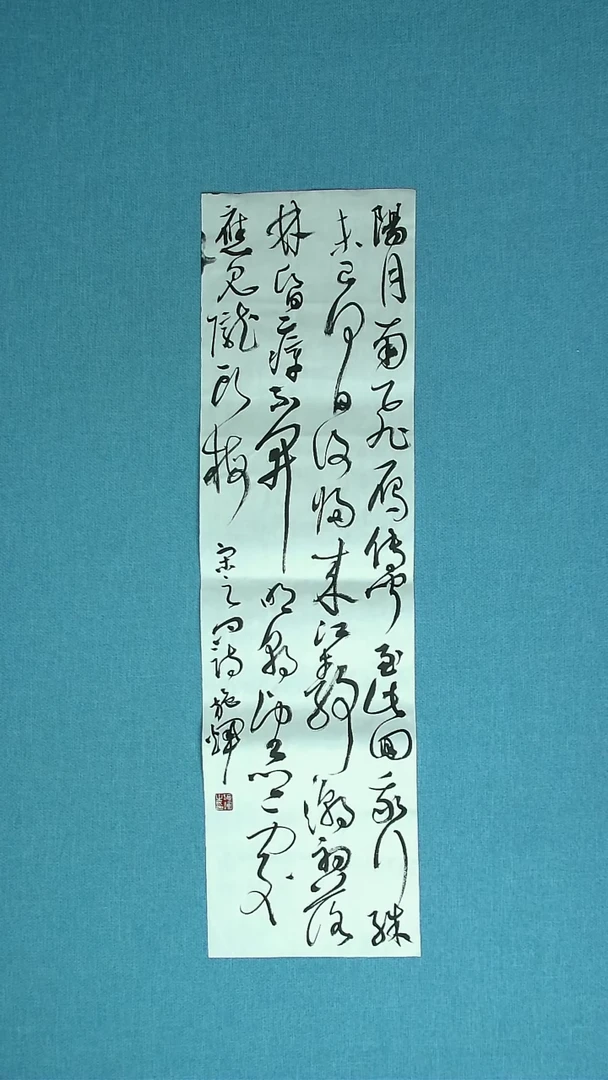 陽月南飛雁傳聞至此回我行殊
未已何日復歸來江靜潮初落
林昏瘴不開明朝望鄉處
應見隴頭梅
宋之問詩 施輝